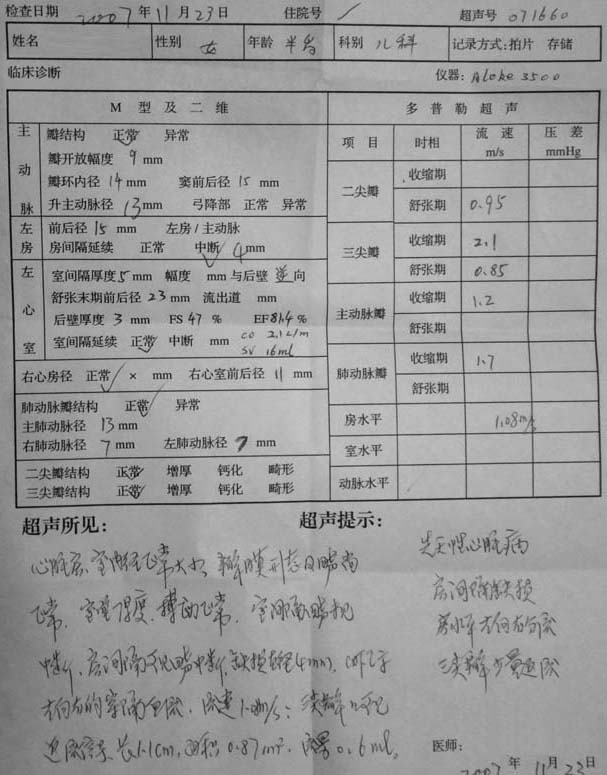 检查日期 2007 年 11 月 23 日 住院号 / 超声号 071660
姓名 性别 女 年龄 半岁 科别 儿科 记录方式:拍片 存储
临床诊断 仪器: Aloke 3500
M 型 及 二 维 多 普 勒 超 声
主动脉 瓣结构 正常 异常
瓣开放幅度 9 mm
瓣环内径 14 mm 窦前后径 15 mm
升主动脉径 13 mm 弓降部 正常 异常
项目 时相 流速 m/s 压差 mmHg
二尖瓣 收缩期
舒张期 0.95
左房 前后径 15 mm 左房/主动脉
房间隔延续 正常 中断 4 mm
三尖瓣 收缩期 2.1
舒张期 0.85
左心室 室间隔厚度 5 mm 幅度 mm 与后壁 逆 向
舒张末期前后径 23 mm 流出道 mm
后壁厚度 3 mm FS 47 % EF 81.4 %
室间隔延续 正常 中断 mm CO 2.1 L/m
SV 16ml
主动脉瓣 收缩期 1.2
舒张期
右心房径 正常 × mm 右心室前后径 11 mm
肺动脉瓣 收缩期 1.7
舒张期
肺动脉瓣结构 正常 异常
主肺动脉径 13 mm
右肺动脉径 7 mm 左肺动脉径 7 mm
房水平 1.08m/s
室水平
动脉水平
二尖瓣结构 正常 增厚 钙化 畸形
三尖瓣结构 正常 增厚 钙化 畸形
超声所见: 超声提示:
心脏房、室内径正常大小, 瓣膜形态及回声尚
正常, 室壁厚度、搏动正常, 室间隔回声无
中断, 房间隔可见回声中断, 缺损直径4mm,
左向右的穿隔血流, 流速1.08m/s; 三尖瓣上可见
返流信号, 长1.1cm, 面积0.87cm², 流量0.6ml。
先天性心脏病
房间隔缺损
房水平左向右分流
三尖瓣少量返流
医师:
2007 年 11 月 23 日